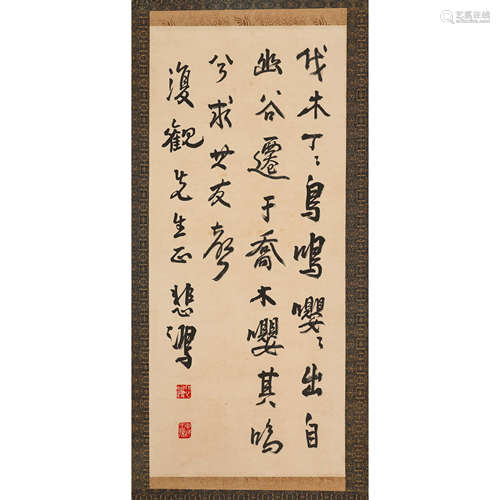 伐木丁〻鳥鳴嚶〻出自
幽谷遷于喬木嚶其鳴
兮求其友聲
復觀先生正 悲鴻
艺狐在线